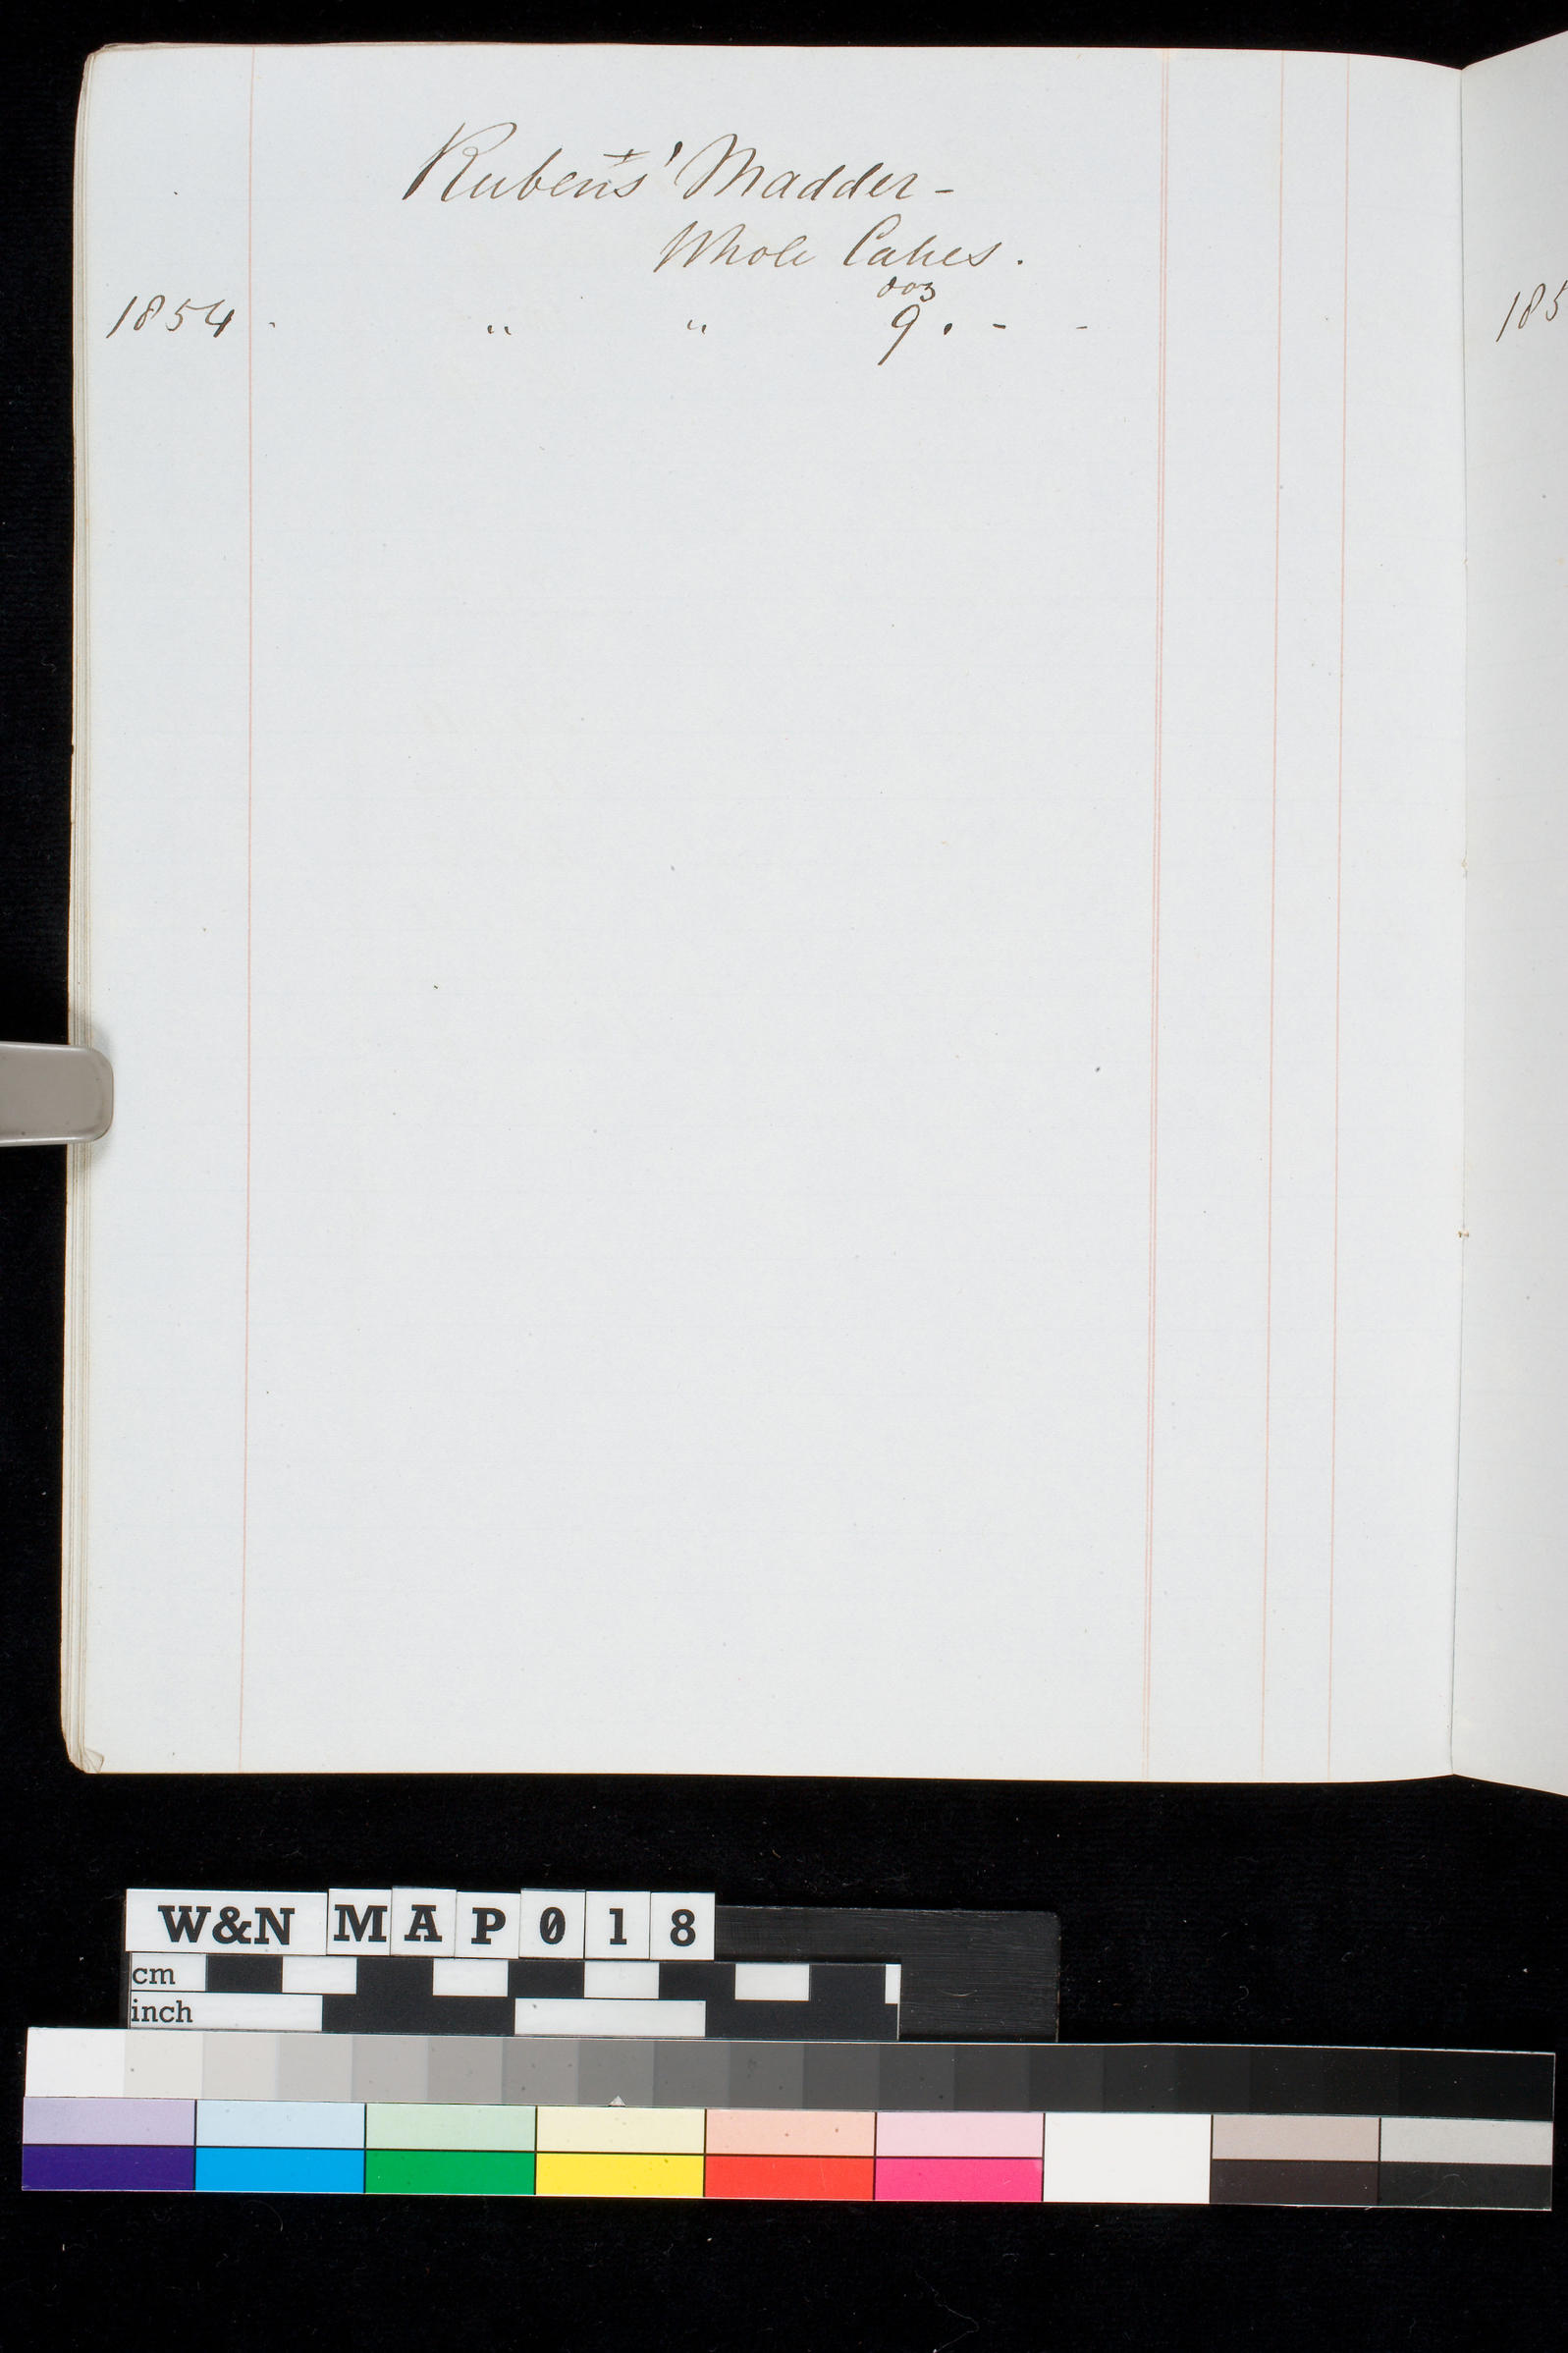 Rubens' Madder -
Whole Cakes.
doz
1854 - " " 9 . - -
185
W&N MAP018
cm
inch